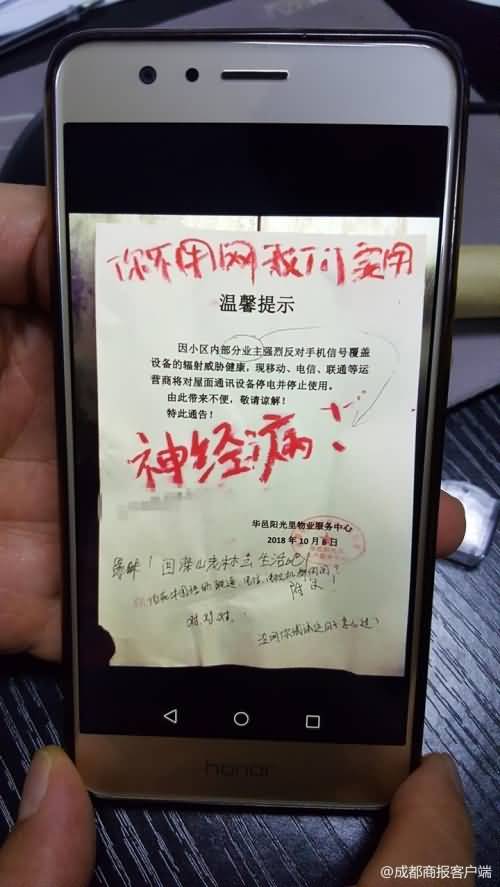 你不用网 我们要用
温馨提示
因小区内部分业主强烈反对手机信号覆盖
设备的辐射威胁健康，现移动、电信、联通等运
营商将对屋面通讯设备停电并停止使用。
由此带来不便，敬请谅解！
特此通告！
神经病！
华邑阳光里物业服务中心
2018年10月8日
愚昧！回深山老林去生活吧！
附议
对.对.对.
没网你试试这日子怎么过！
honor
@成都商报客户端